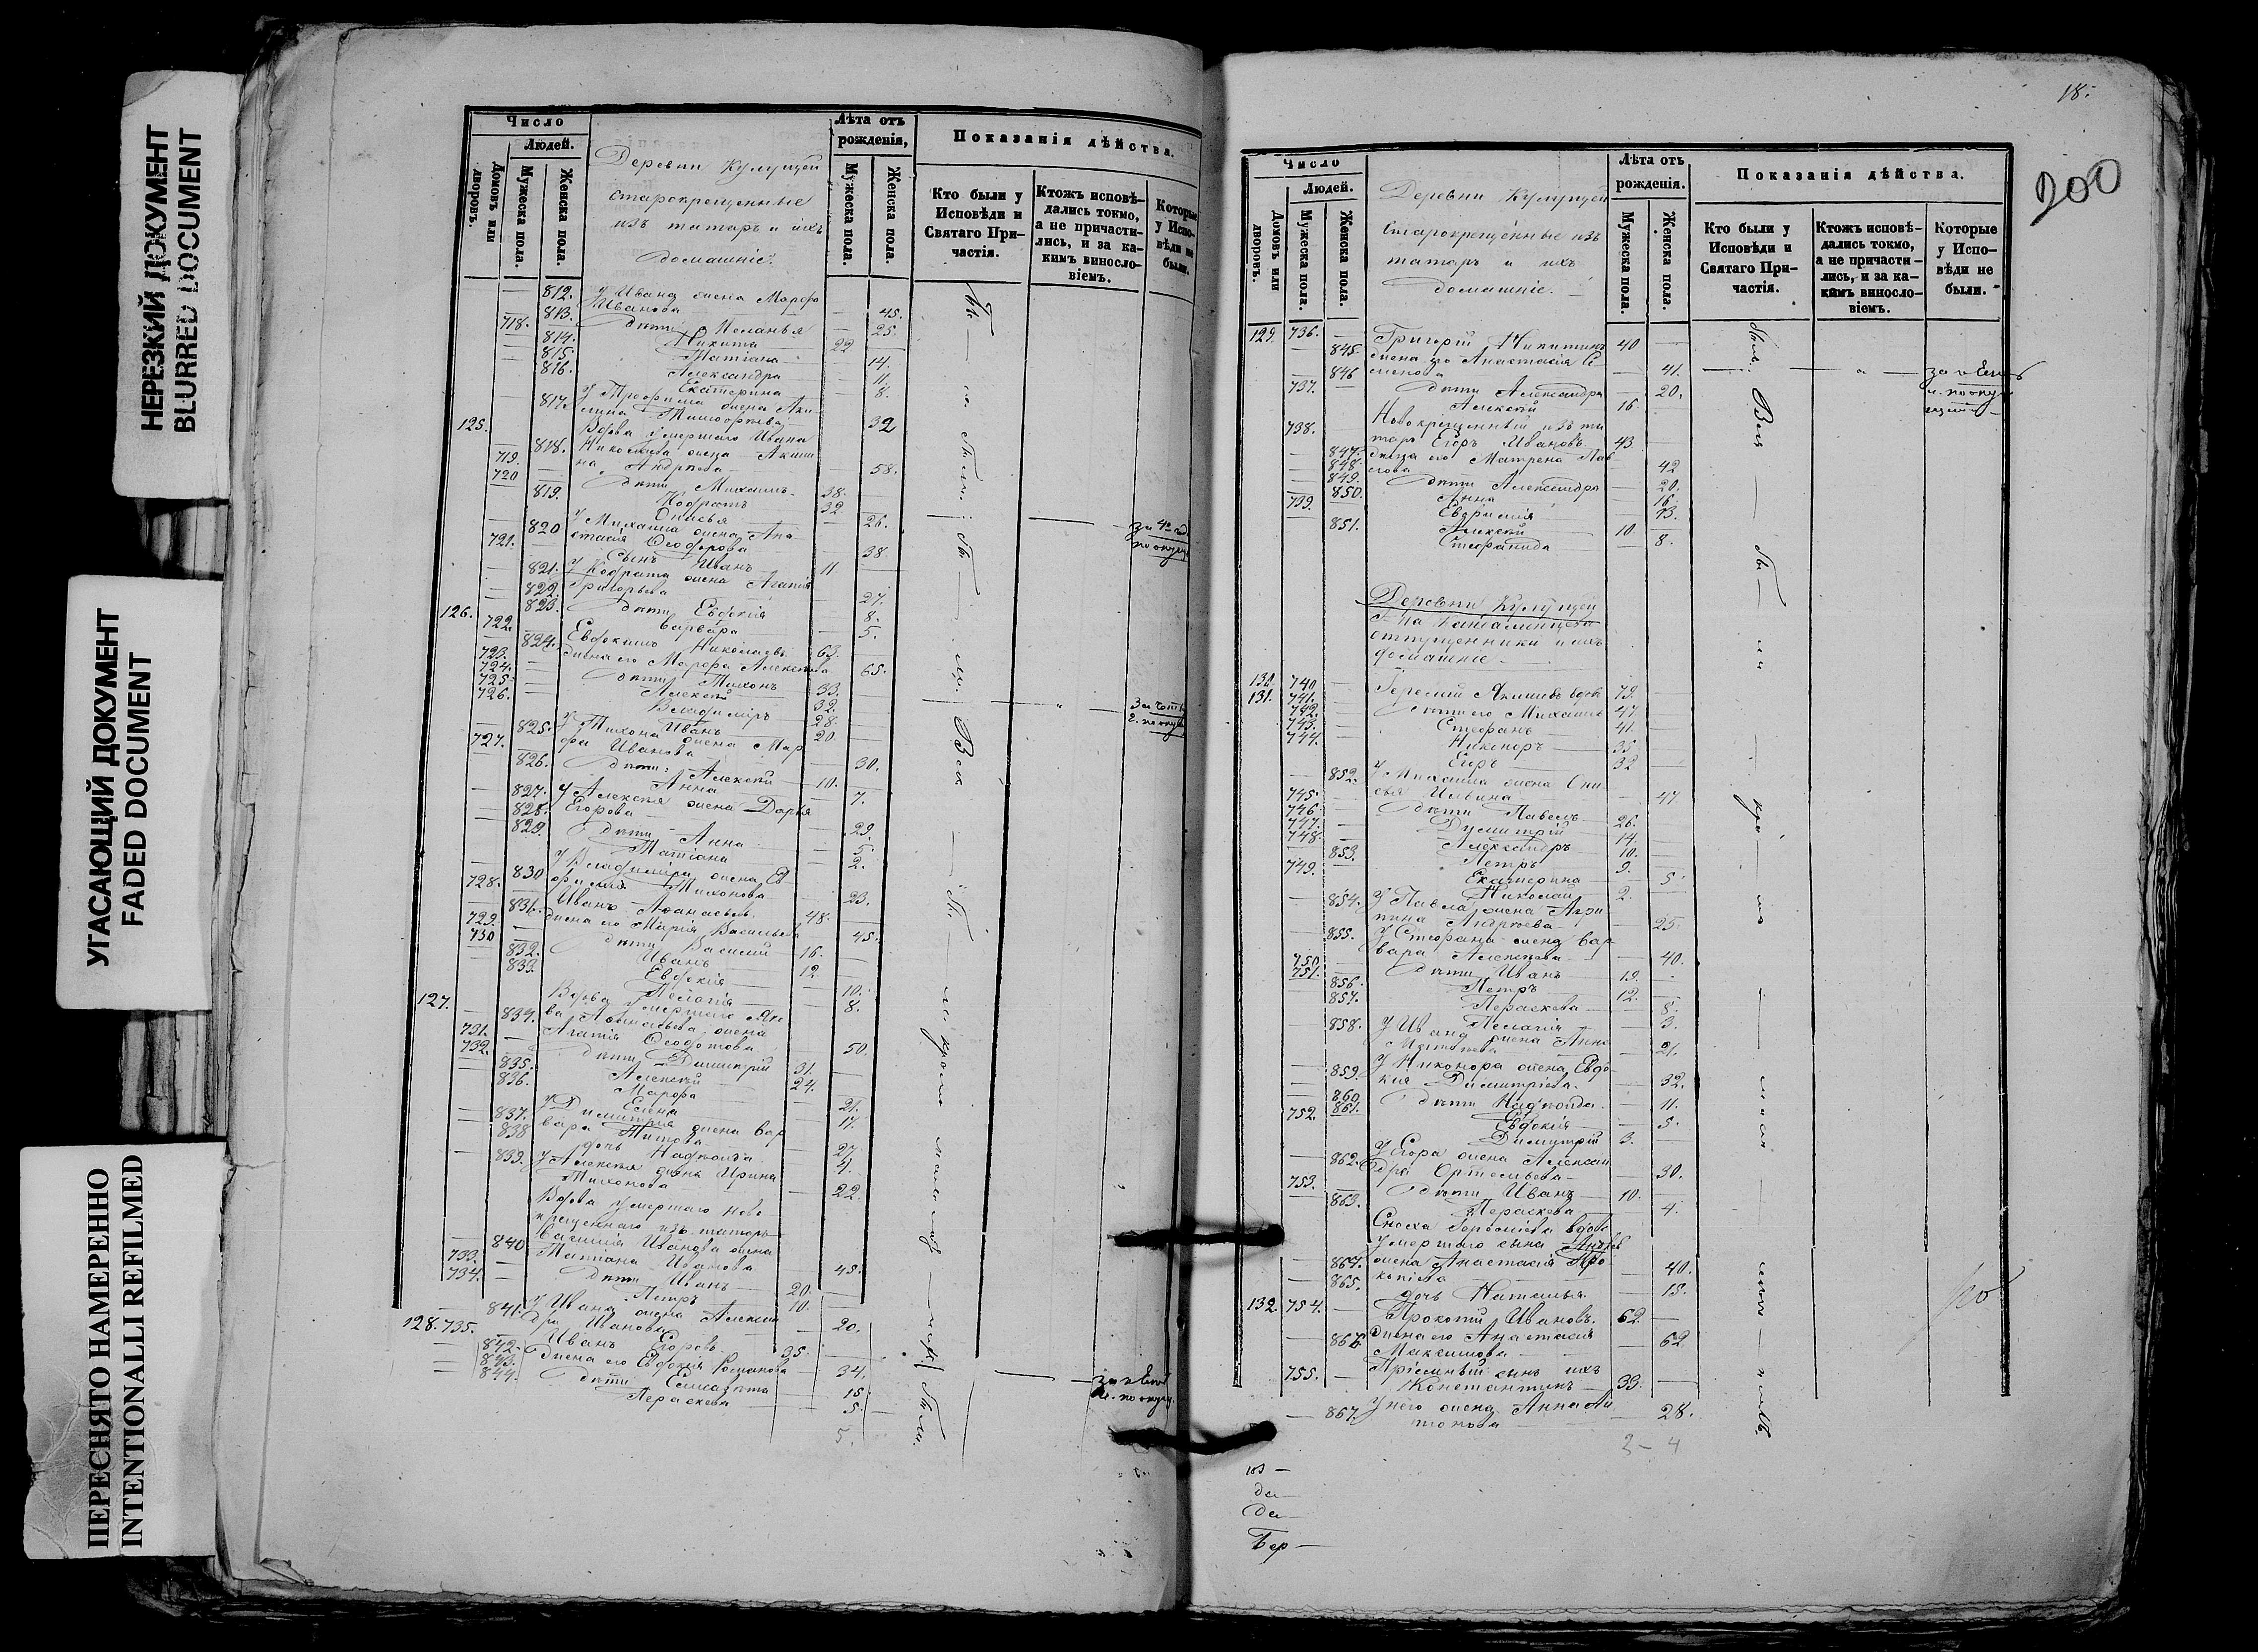 НЕРЕЗКИЙ ДОКУМЕНТ
BLURRED DOCUMENT
УГАСАЮЩИЙ ДОКУМЕНТ
FADED DOCUMENT
ПЕРЕСНЯТО НАМЕРЕННО
INTENTIONALLI REFILMED
Число
Людей.
Домовъ или дворовъ.
Мужеска пола.
Женска пола.
Деревни Кулущей
старокрещенные
изъ татаръ и ихъ
домашніе.
Лѣта отъ рожденія,
Мужеска пола.
Женска пола.
Показанія дѣйства.
Кто были у Исповѣди и Святаго Причастія.
Ктожъ исповѣдались токмо, а не причастились, и за какимъ винословіемъ.
Которые у Исповѣди не были.
812. У Ивана жена Марфа
Иванова — 45.
813. дѣти Меланья — 25.
718. Никита 22
814. Татіана — 14.
815. Александра — 11.
816. Екатерина — 8.
817. У Трофима жена
32
125. Вдова умершаго Ивана
818. Николаева жена Акили
на Андреева — 58.
719. дѣти Михаилъ 38.
720 Кодратъ 32
819. Онисья — 26.
820 У Михаила жена Ана
стасія Ѳеодорова — 38
721. Сынъ Иванъ 11.
821. У Кодрата жена Агапія
Григорьева — 27.
822. дѣти Евдокія — 8.
823. Варвара — 5.
126. 722. Евдокимъ Николаевъ 63.
824. жена его Марфа Алексѣева 65.
723. дѣти Тихонъ 33.
724. Алексѣй 32.
725. Владиміръ 28.
726. Иванъ 20.
825. У Тихона жена Мар
фа Иванова — 30.
727. дѣти: Алексѣй 10.
826. Анна — 7.
827. У Алексѣя жена Дарья
Егорова — 29.
828. дѣти Анна — 5.
829. Татіана — 2.
830 У Владиміра жена Ев
фимія Тихонова — 23.
728. Иванъ Аѳанасьевъ 48.
831. жена его Марія Васильева 45.
729. дѣти Василій 16.
730 Иванъ 12.
832. Евдокія — 10.
833. Пелагія — 8.
127. Вдова умершаго Яко
834. ва Аѳанасьева жена
Агапія Ѳеодотова 50.
731. дѣти Димитрій 31.
732. Алексѣй 24.
835. Марфа — 21.
836. Елена — 17.
837. У Димитрія жена Вар
вара Титова — 27
838 дочь Надежда — 4.
839. У Алексѣя жена Ирина
Тихонова — 22.
Вдова умершаго ново
крещеннаго изъ татаръ
Василія Иванова жена
840 Татіана Иванова 45.
733. дѣти Иванъ 20.
734. Петръ 10.
841. У Ивана жена Алексан
дра Иванова — 20.
128. 735. Иванъ Егоровъ 35.
842. Жена его Евдокія Романова 34.
843. дѣти Елисавета 15
844. Параскева — 5.
5.
18.
200
Число
Людей.
Домовъ или дворовъ.
Мужеска пола.
Женска пола.
Деревни Кулущей
Старокрещенные изъ
татаръ и ихъ
домашніе.
Лѣта отъ рожденія.
Мужеска пола
Женска пола.
Показанія дѣйства.
Кто были у Исповѣди и Святаго Причастія.
Ктожъ исповѣдались токмо, а не причастились, и за какимъ винословіемъ.
Которые у Исповѣди не были.
129. 736. Григорій Никитинъ 40
845. жена его Анастасія Се
менова — 41.
846 дѣти Александра — 20.
737. Алексѣй 16.
Новокрещенный изъ та
738. таръ Егоръ Ивановъ 43
847. жена его Матрена Пав
лова — 42
848. дѣти Александра — 20.
849. Анна — 16.
850. Евфимія — 13.
739. Алексѣй 10
851. Стефанида — 8.
Деревни Кулущей
отпущенники и ихъ
домашніе.
130 740 Акимовъ вдовъ 79.
131. 741. дѣти его Михаилъ 47.
742. Стефанъ 41.
743. Никоноръ 35
744. Егоръ 32
852. У Михаила жена Они
сья Ильина — 47
745. дѣти Павелъ 26.
746. Димитрій 14.
747. Александръ 10.
748. Петръ 9.
853. Екатерина — 5.
749. Николай 2.
854. У Павла жена Агри
пина Андреева — 25.
855. У Стефана жена Вар
вара Алексѣева — 40.
750. дѣти Иванъ 19.
751. Петръ 12.
856. Параскева — 8.
857. Пелагія — 3.
858. У Ивана жена Анна
Матвѣева — 21.
859. У Никонора жена Евдо
кія Димитріева — 32.
860 дѣти Надежда — 11.
861. Евдокія — 5.
752. Димитрій 3.
862. У Егора жена Алексан
дра — 30.
753. дѣти Иванъ 10.
863. Параскева — 4.
Сноха вдова
умершаго сына
864. жена Анастасія Про
копіева — 40.
865. дочь Наталья — 15.
132. 754. Прокопій Ивановъ 62.
866. жена его Анастасія
Максимова — 62.
755. Пріемный сынъ ихъ
Константинъ 33.
867. У него жена Анна Ан
тонова — 28.
2 — 4